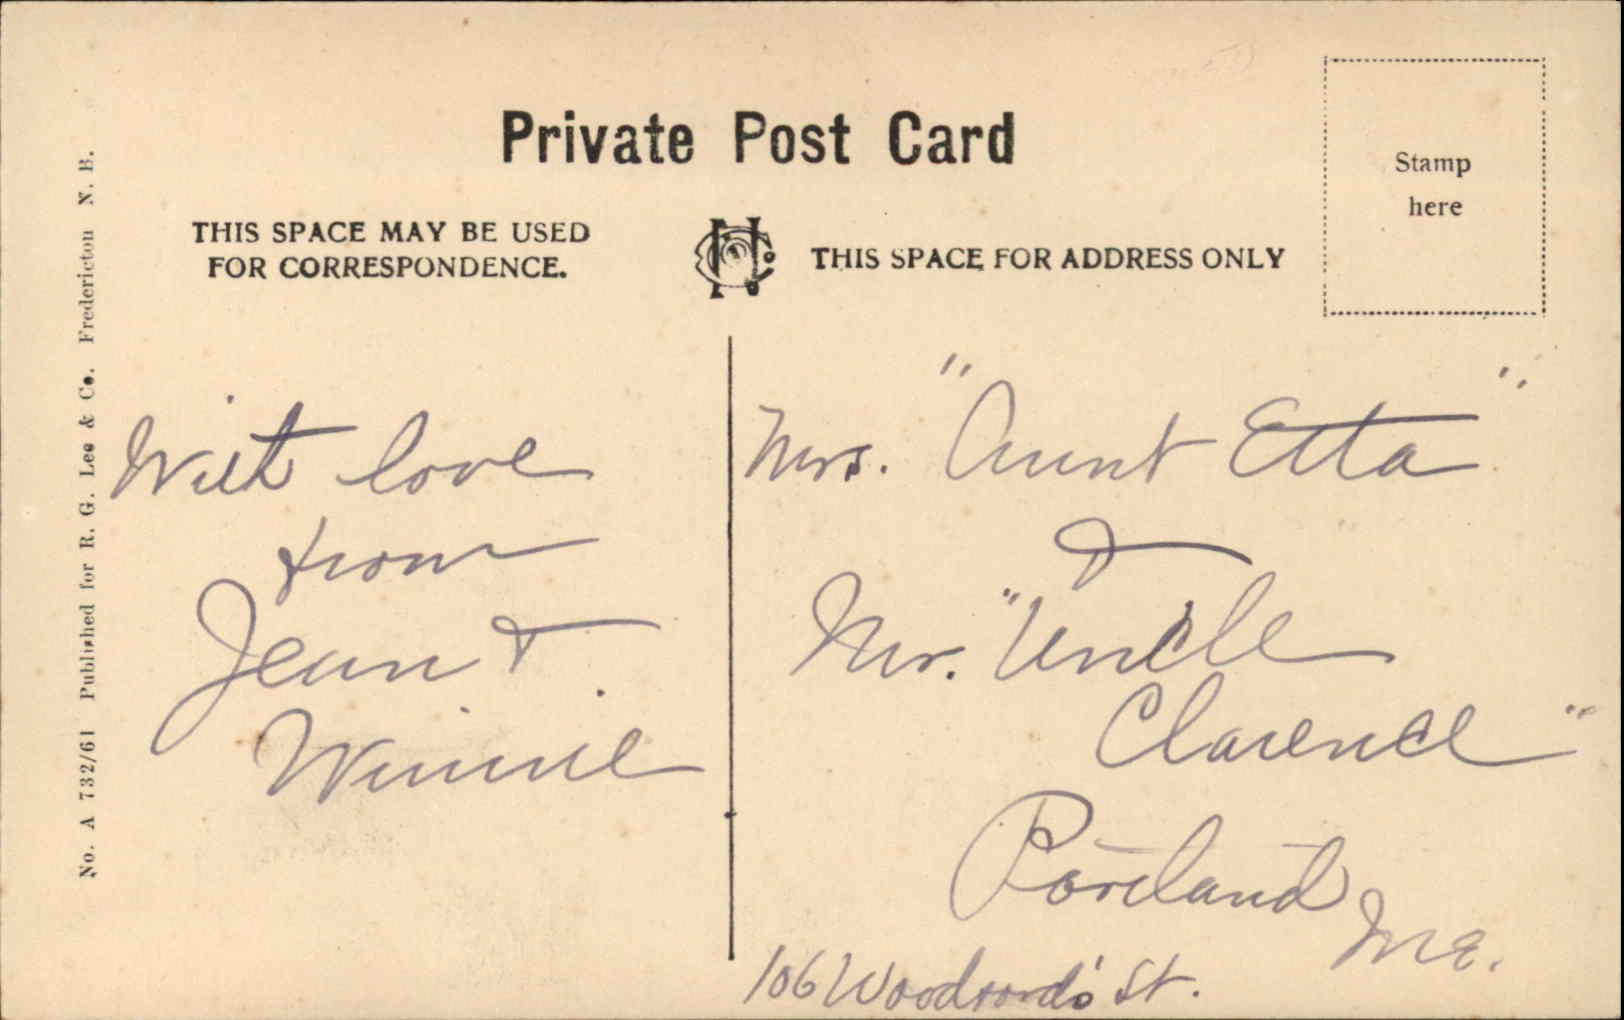 Private Post Card
Stamp
here
THIS SPACE MAY BE USED
FOR CORRESPONDENCE.
THIS SPACE FOR ADDRESS ONLY
No. A 732/61 Published for R. G. Lee & Co. Fredericton N. B.
With love
from
Jean &
Winnie
Mrs. "Aunt Etta"
&
Mr. "Uncle
Clarence"
Portland
Me.
106 St.